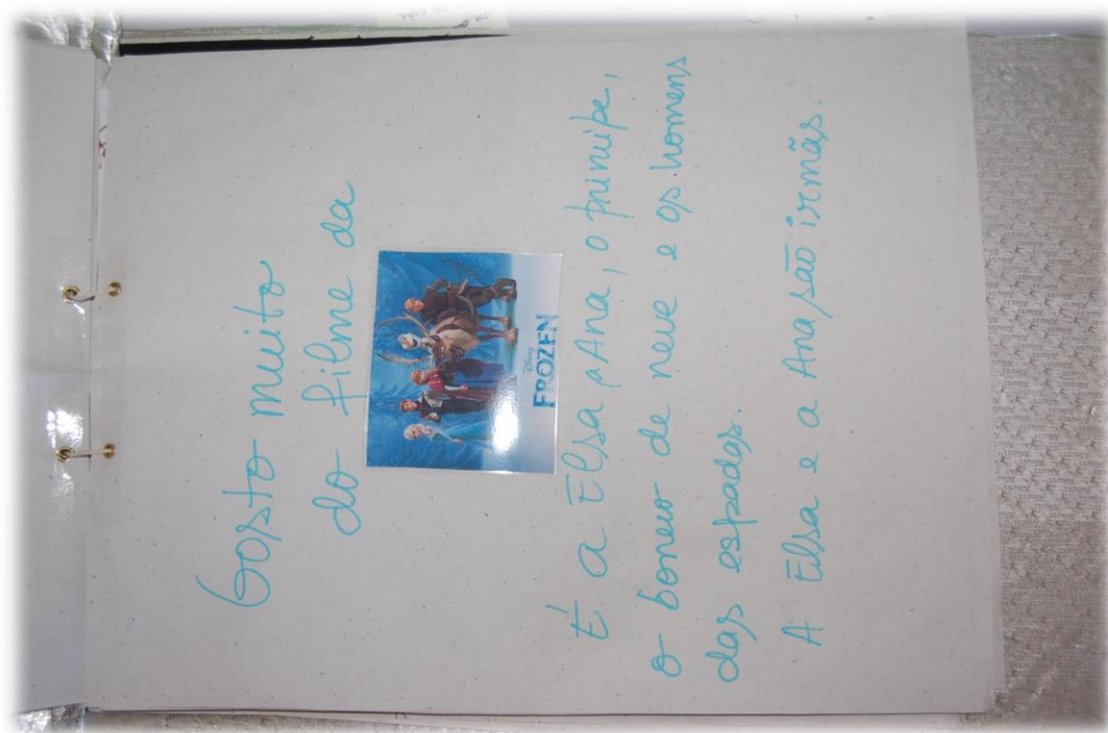 Gosto muito
do filme da
Disney
FROZEN
É a Elsa, a Ana, o principe,
o boneco de neve e os homens
das espadas.
A Elsa e a Ana são irmãs.